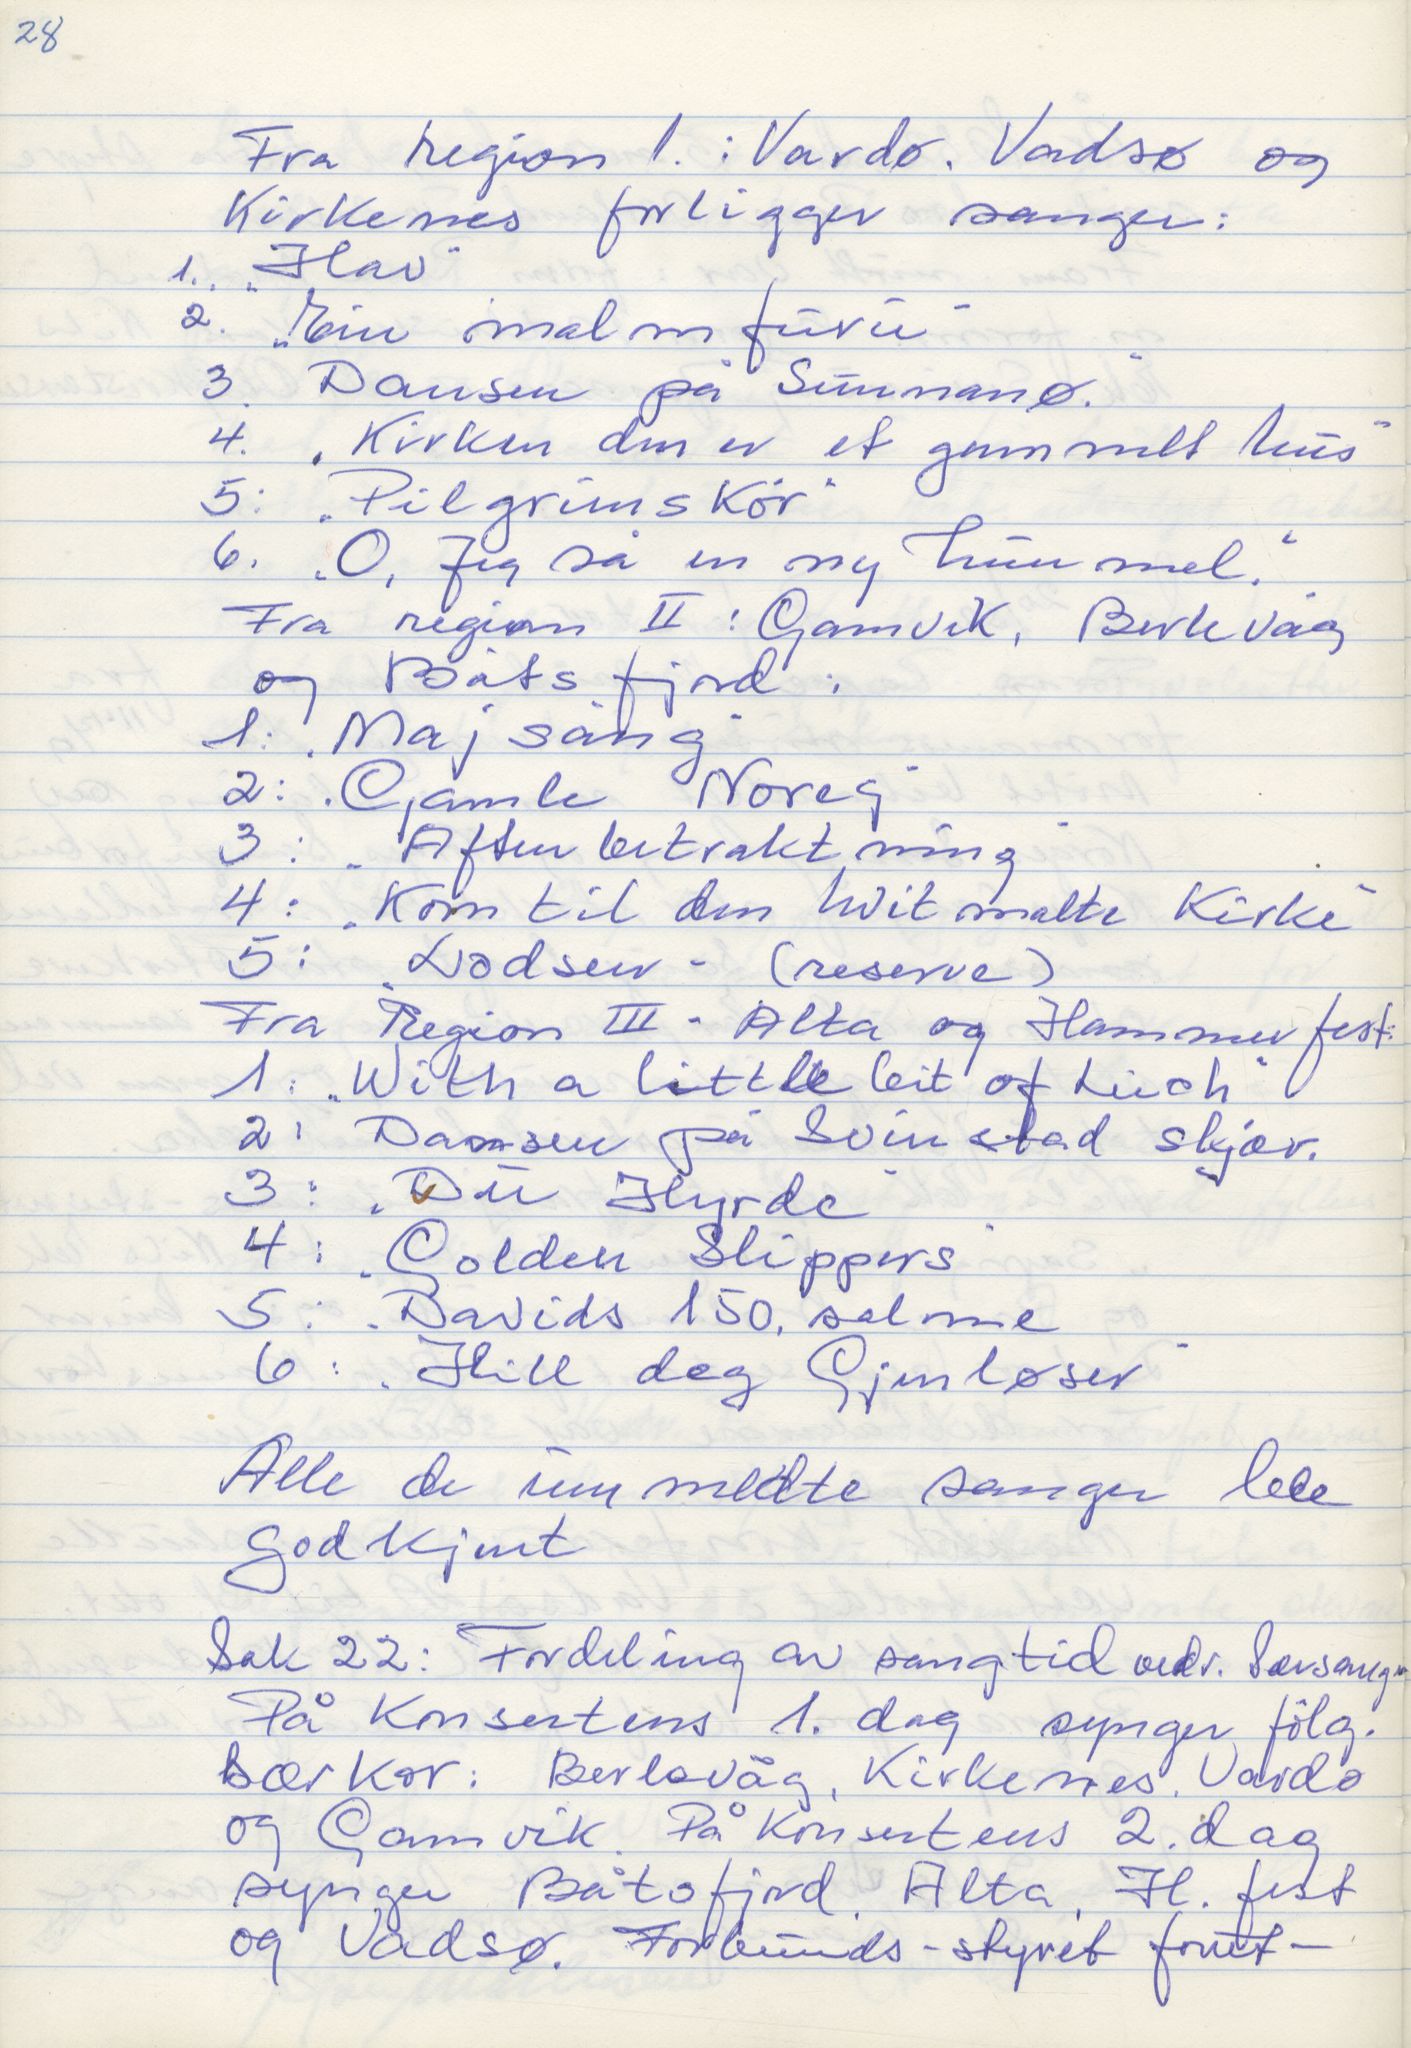 28
Fra region 1. : Vardø. Vadsø og
Kirkenes forligger sanger:
1. „Hav"
2. „Ein malmfuru"
3. Dansen på Sunnanø."
4. „Kirken den er et gammelt hus"
5: „Pilgrimskör"
6. „O, Jeg så en ny himmel."
Fra region II : Gamvik, Berlevåg
og Båtsfjord :
1: „Maj sång"
2: „Gamle Noreg"
3 : „Aftenbetraktning"
4 : „Kom til den hvitmalte Kirke"
5 : „Lodsen" (reserve)
Fra Region III - Alta og Hammerfest:
1 : „With a little bit of Luch"
2 : Dansen på Svinstad skjær.
3 : „Du Hyrde"
4 : „Golden Slippers"
5 : „Davids 150. salme
6 : „Hill deg Gjenløser"
Alle de innmeldte sanger ble
godkjent
Sak 22: Fordeling av sangtid vedr. Særsanger
På Konsertens 1. dag synger följ.
særkor: Berlevåg, Kirkenes, Vardø
og Gamvik. På Konsertens 2. dag
synger Båtsfjord, Alta, H. fest
og Vadsø. Forbunds-styret forut-